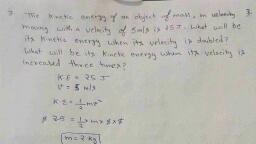 The Kinetic energy of an object of mass, m
moving with a velocity of 5m/s is 25 J. What will be
its kinetic energy when its velocity is doubled?
What will be its kinetic energy when its velocity is
increased three times?
K.E = 25 J
V = 5 m/s
K.E = 1/2 mv²
25 = 1/2 × m × 5 × 5
m = 2 kg